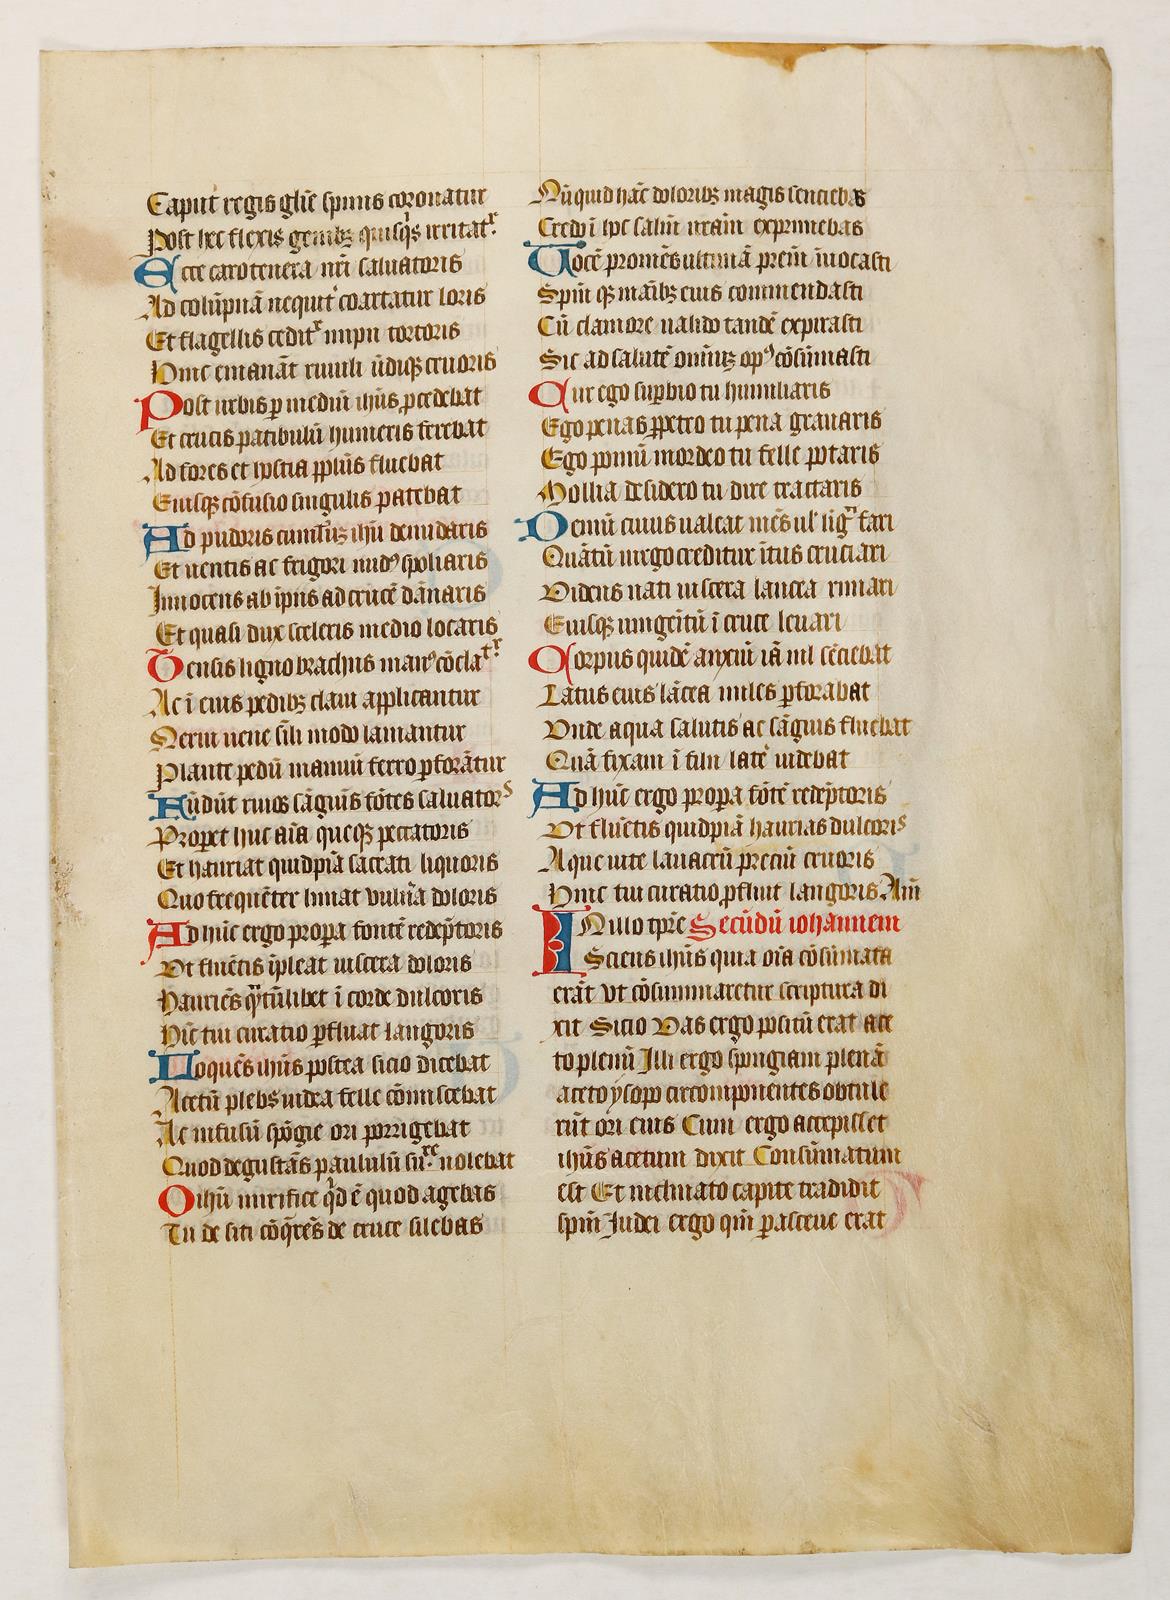 Caput regis glīe spinis coronatur
Post hec flexis genibꝫ quisqꝫ irritatr
Ecce caro tenera nrī saluatoris
Ad colūpnā nequit coartatur loris
Et flagellis cedit impii tortoris
Hinc emanāt riuuli ūdiqꝫ cruoris
Post urbis ꝑ mediū ihūs ꝓcedebat
Et crucis patibulū humeris ferebat
Ad fores et hostia ppl̄us fluebat
Eiusqꝫ cōfusio singulis patebat
Ad pudoris ihū denudaris
Et uentis ac frigori nudꝰ spoliaris
Innocens ab īpiis ad crucē dānaris
Et quasi dux sceleris medio locaris
Tensis ligno brachiis manꝰ cōclatr
Ac ī eius pedibꝫ claui applicantur
Nerui uene sīli modo laniantur
Plante pedū manuū ferro ꝑforātur
Fūdūt riuos sāguis fōtes saluators
Properet huc aīa queqꝫ peccatoris
Et hauriat quidpiā sacrati liquoris
Quo frequēter liniat vulnīa doloris
Ad hūc ergo propera fontē redēptoris
Vt fluētis īpleat uiscera doloris
Hauriēs qntūlibet ī corde dulcoris
Hīc tui curatio ꝑfluat langoris
Loquēs ihūs postea sicio dicebat
Acetū plebs iudea felle cōmiscebat
Ac infusū spōgie ori porrigebat
Quod degustās paululū nolebat
O ihū mirifice qd ē quod agebas
Tu de siti cōqrēs de cruce silebas
Nūquid hāc doloribꝫ magis senciebas
Credo ī ipc salūī nrām exprimebas
Vocē promēs ultimā prēm īuocasti
Spīm qꝫ maībꝫ eius commendasti
Cū clamore ualido tandē expirasti
Sic ad salutē omīuꝫ opꝰ cōsūmasti
Cur ego suꝑbio tu humiliaris
Ego penas ꝑpetro tu pena grauaris
Ego pomū mordeo tu felle potaris
Mollia desidero tu dire tractaris
Demū cuius ualeat mēs ul ligua fari
Quātū uirgo creditur ītus cruciari
Videns nati uiscera lancea rimari
Eiusqꝫ unigeītū ī cruce leuari
Corpus quidē anxiū iā nil sēciebat
Latus eius lācea miles ꝑforabat
Vnde aqua salutis ac sāguis fluebat
Quā fixam ī filii late uidebat
Ad hūc ergo propera fōtē redēptoris
Vt fluētis quidpiā haurias dulcoris
Aque uite lauacrū preciū cruoris
Hinc tui curatio ꝑfluit langoris Am̄
IN illo tpre Secūdū iohannem
Sciens ihūs quia oīa cōsūmata
erāt vt cōsummaretur scriptura di
xit Sicio Vas ergo positū erat ace
to plenū Illi ergo spongiam plenā
aceto ysopo circomponentes obtule
rūt ori eius Cum ergo accepisset
ihūs acetum dixit Consūmatum
est Et inclinato capite tradidit
spīm Iudei ergo qm̄ ꝑasceue erat